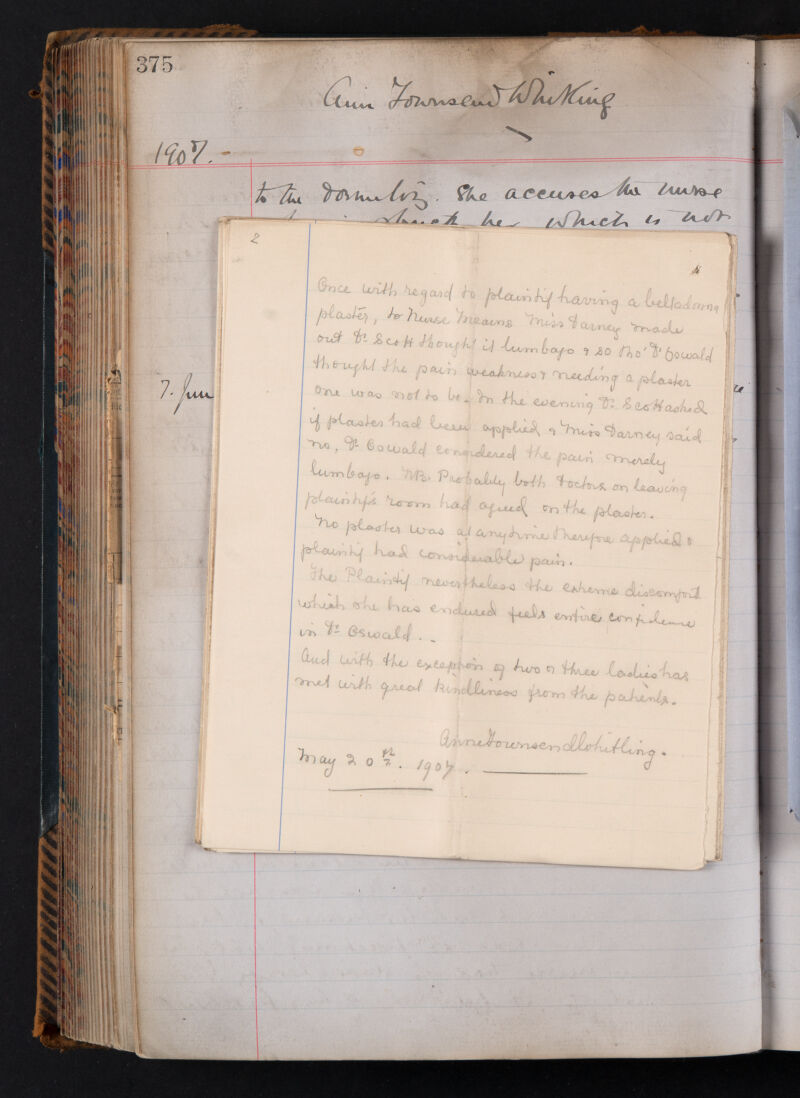 375
Ann Townsend Whitling
1907.
to the dormitory. She accuses the nurse
struck her which is not
7. Jun
2
Once with regard to plaintif having a belladonna
plaster, to Nurse Means Miss Darney made
out Dr. Scott thought it lumbago & so tho' Dr Oswald
thought the pain weakness & needing a plaster
one was not to be. In the evening Dr. Scott asked
if plaster had been applied & Miss Darney said
no, Dr Oswald considered the pain merely
lumbago. NB. Probably both Doctors on leaving
plaintif's room had agreed on the plaster.
No plaster was at anytime therefore applied &
plaintif had considerable pain.
The Plaintif nevertheless the extreme discomfort
which she has endured feels entire confidence
in Dr Oswald. -
And with the exception of two or three ladies has
met with great kindliness from the patients.
Anne Townsend Whitling.
May 20th. 1907.